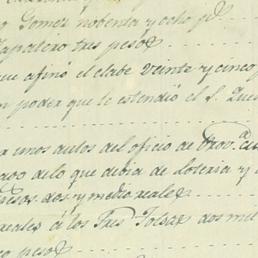 Gomes nobenta y ocho p.s
Zapatero tres pesos
que afinó el clabe veinte y cinco
n poder que le estendió el S. Que
r unos autos del oficio de Prov.a
ado de lo que debia de loteria y
pesos dos y medio reales
reales á los Tres dos mil
co pesos